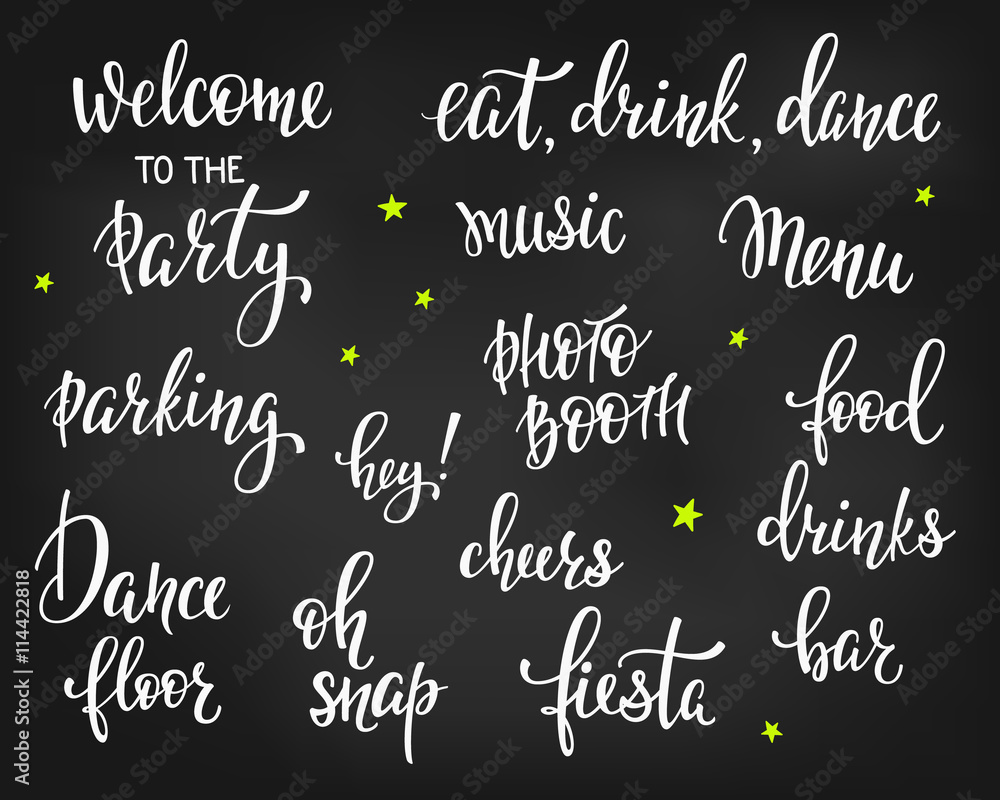 Welcome
TO THE
Party
eat, drink, dance
music
Menu
PHOTO
BOOTH
parking
hey!
food
drinks
Dance
floor
oh
snap
cheers
fiesta
bar
Adobe Stock | #114422818